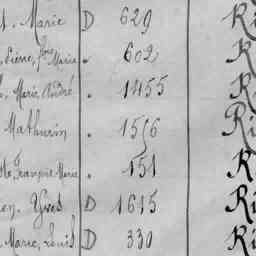 Marie D 629
Pierre, Marie . 602
Marie André . 1455 K
Mathurin . 1516 Ri
François Marie . 151
Yves D 1615 Ri
Marie, Louis D 330 Ri